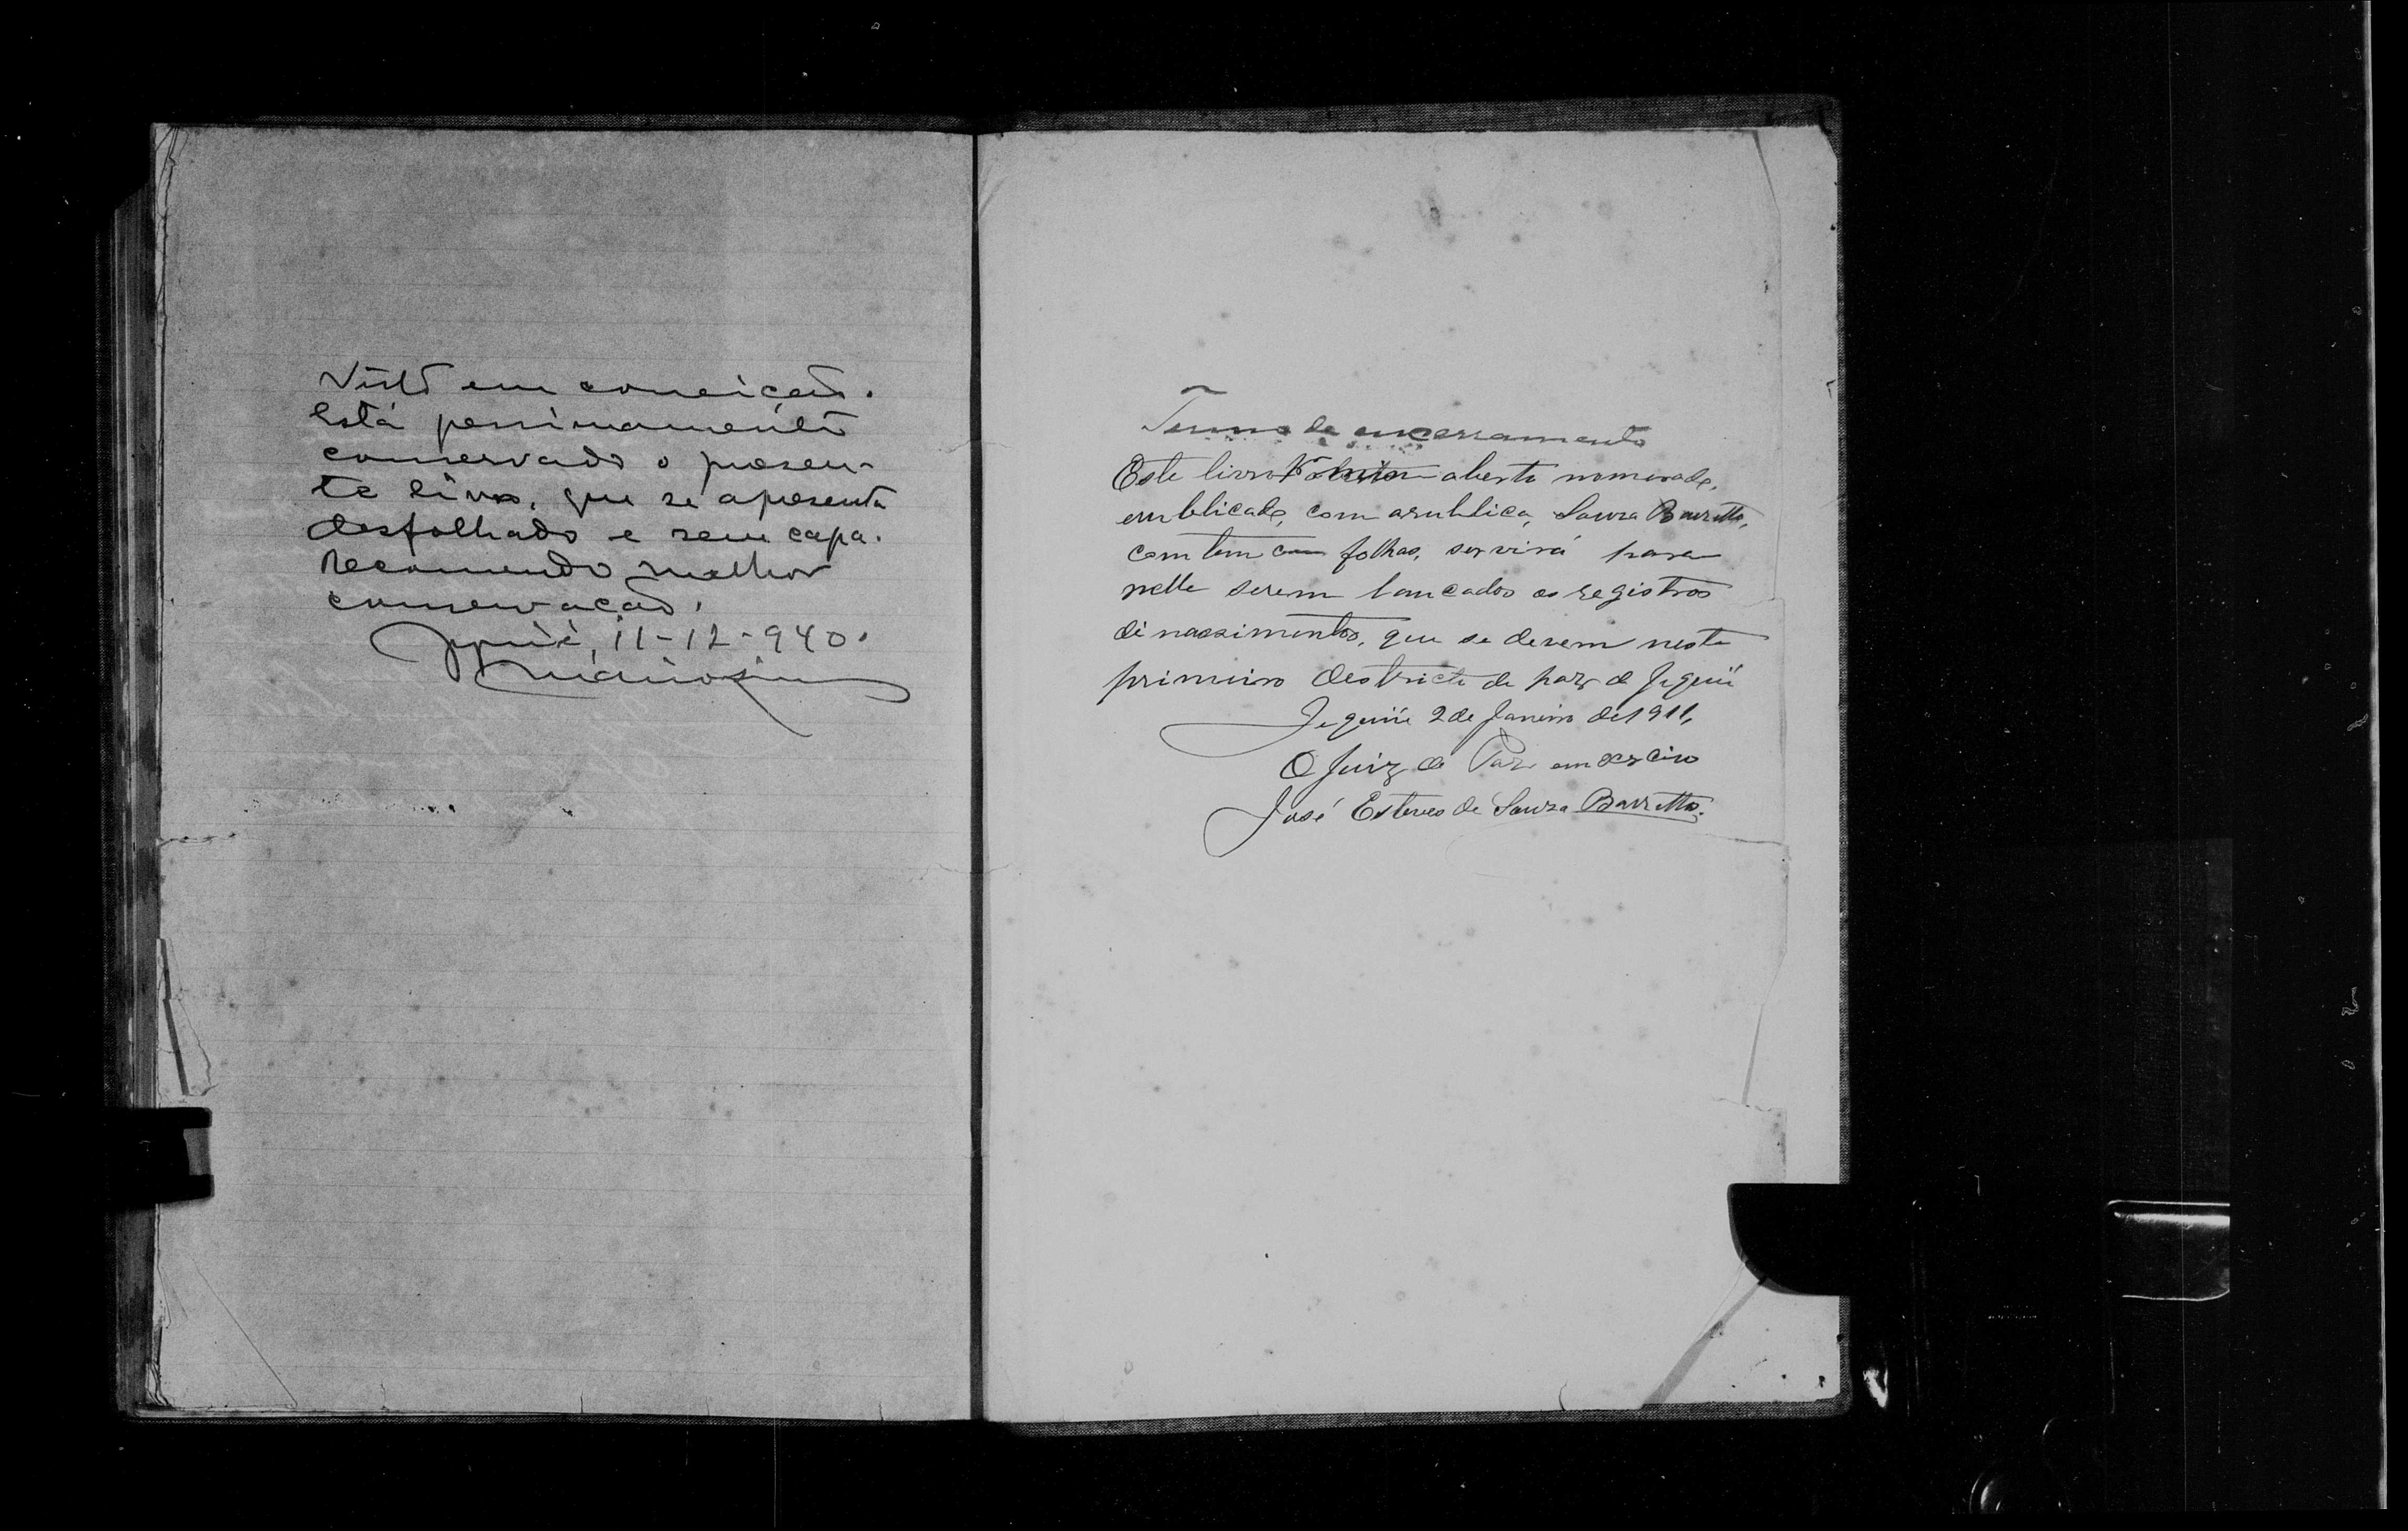 Visto em correição.
Está pessimamente
conservado o presen-
te livro, que se apresenta
desfolhado e sem capa.
Recomendo melhor
conservação.
Jequié, 11-12-940.
Termo de encerramento
Este livro aberto nomerado,
erublicado, com arublica, Souza Barretto,
comtem cem folhas, servirá para
nelle serem lançados os registros
di nassimentos, que se derem neste
primeiro destricto de paz de Jequié
Jequié 2 de Janeiro de 1911,
O Juiz de Paz em exercicio
José Esteves de Souza Barretto.